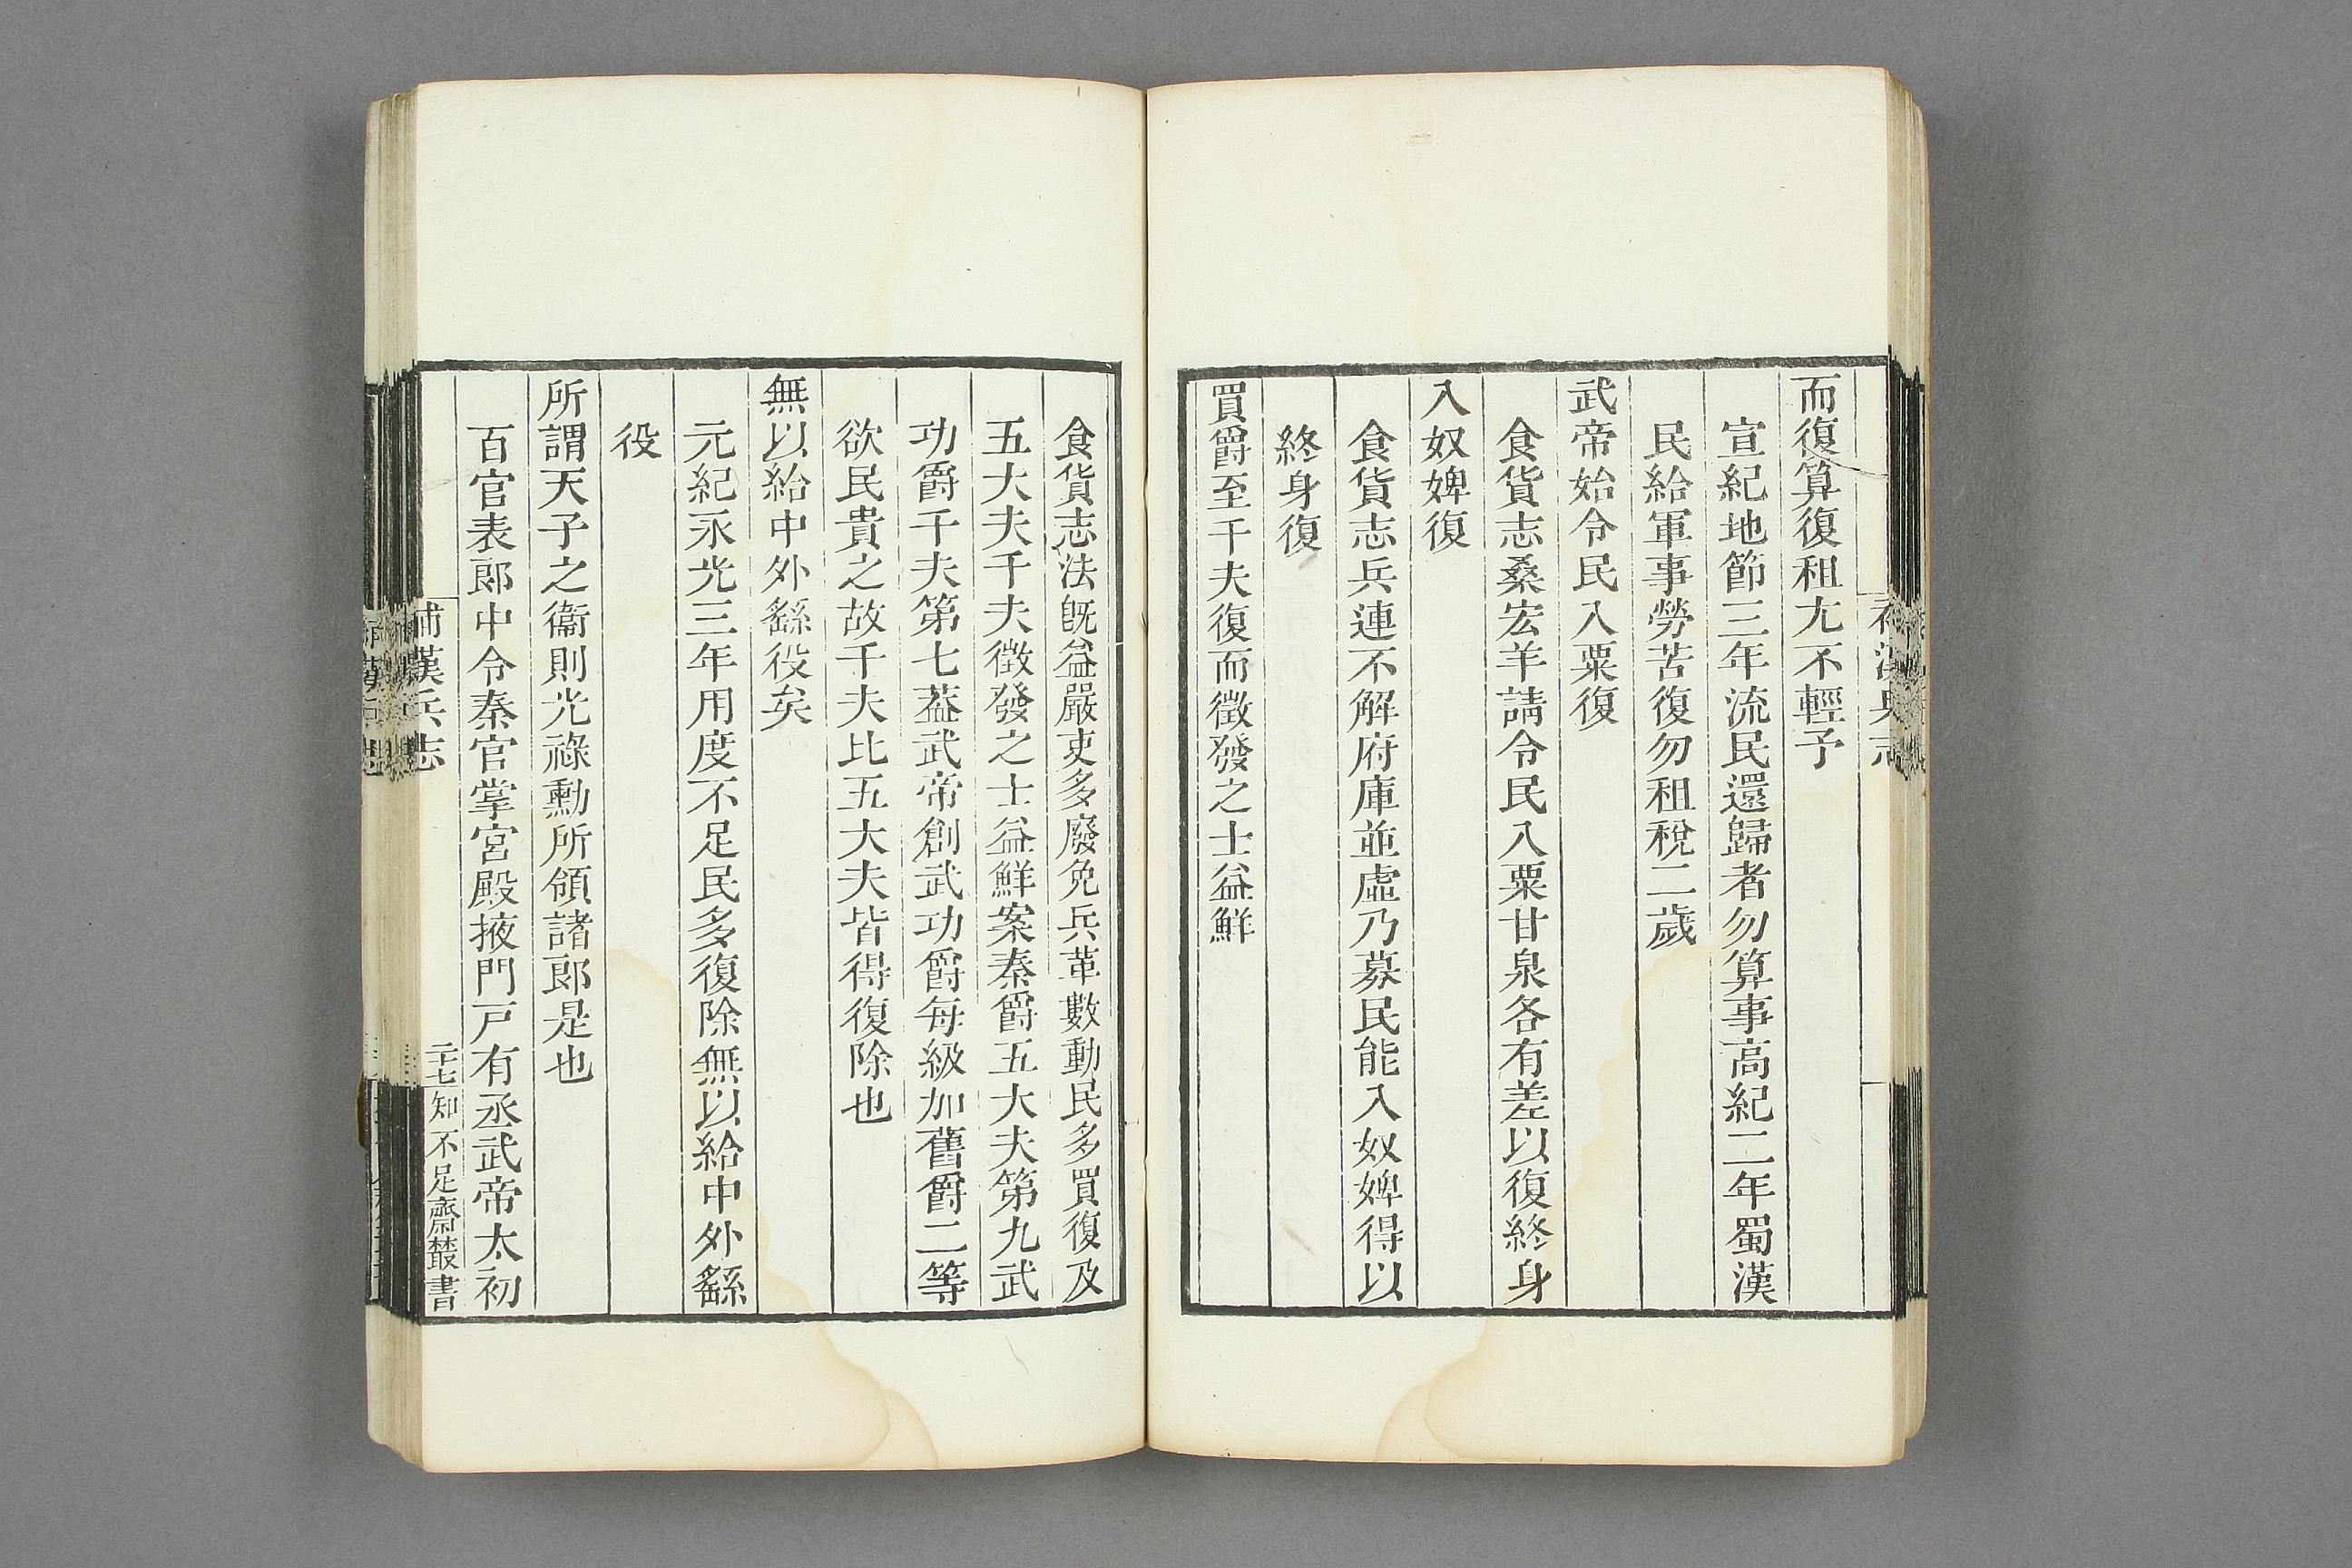 而復算復租尢不輕予
宣紀地節三年流民還歸者勿算事高紀二年蜀漢
民給軍事勞苦復勿租稅二歲
武帝始令民入粟復
食貨志桑宏羊請令民入粟甘泉各有差以復終身
入奴婢復
食貨志兵連不解府庫並虛乃募民能入奴婢得以
終身復
買爵至千夫復而徵發之士益鮮
食貨志法旣益嚴吏多廢免兵革數動民多買復及
五大夫千夫徵發之士益鮮案秦爵五大夫第九武
功爵千夫第七葢武帝創武功爵每級加舊爵二等
欲民貴之故千夫比五大夫皆得復除也
無以給中外繇役矣
元紀永光三年用度不足民多復除無以給中外繇
役
所謂天子之衞則光祿勳所領諸郎是也
百官表郎中令秦官掌宮殿掖門戸有丞武帝太初
補漢兵志
二十七
知不足齋叢書